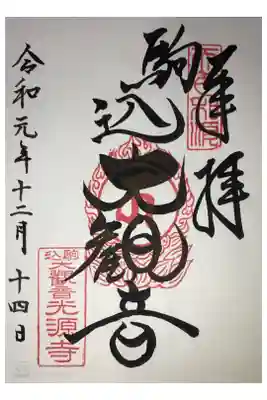 奉拝
駒込大観音
令和元年十二月十四日
駒込
大觀音光源寺